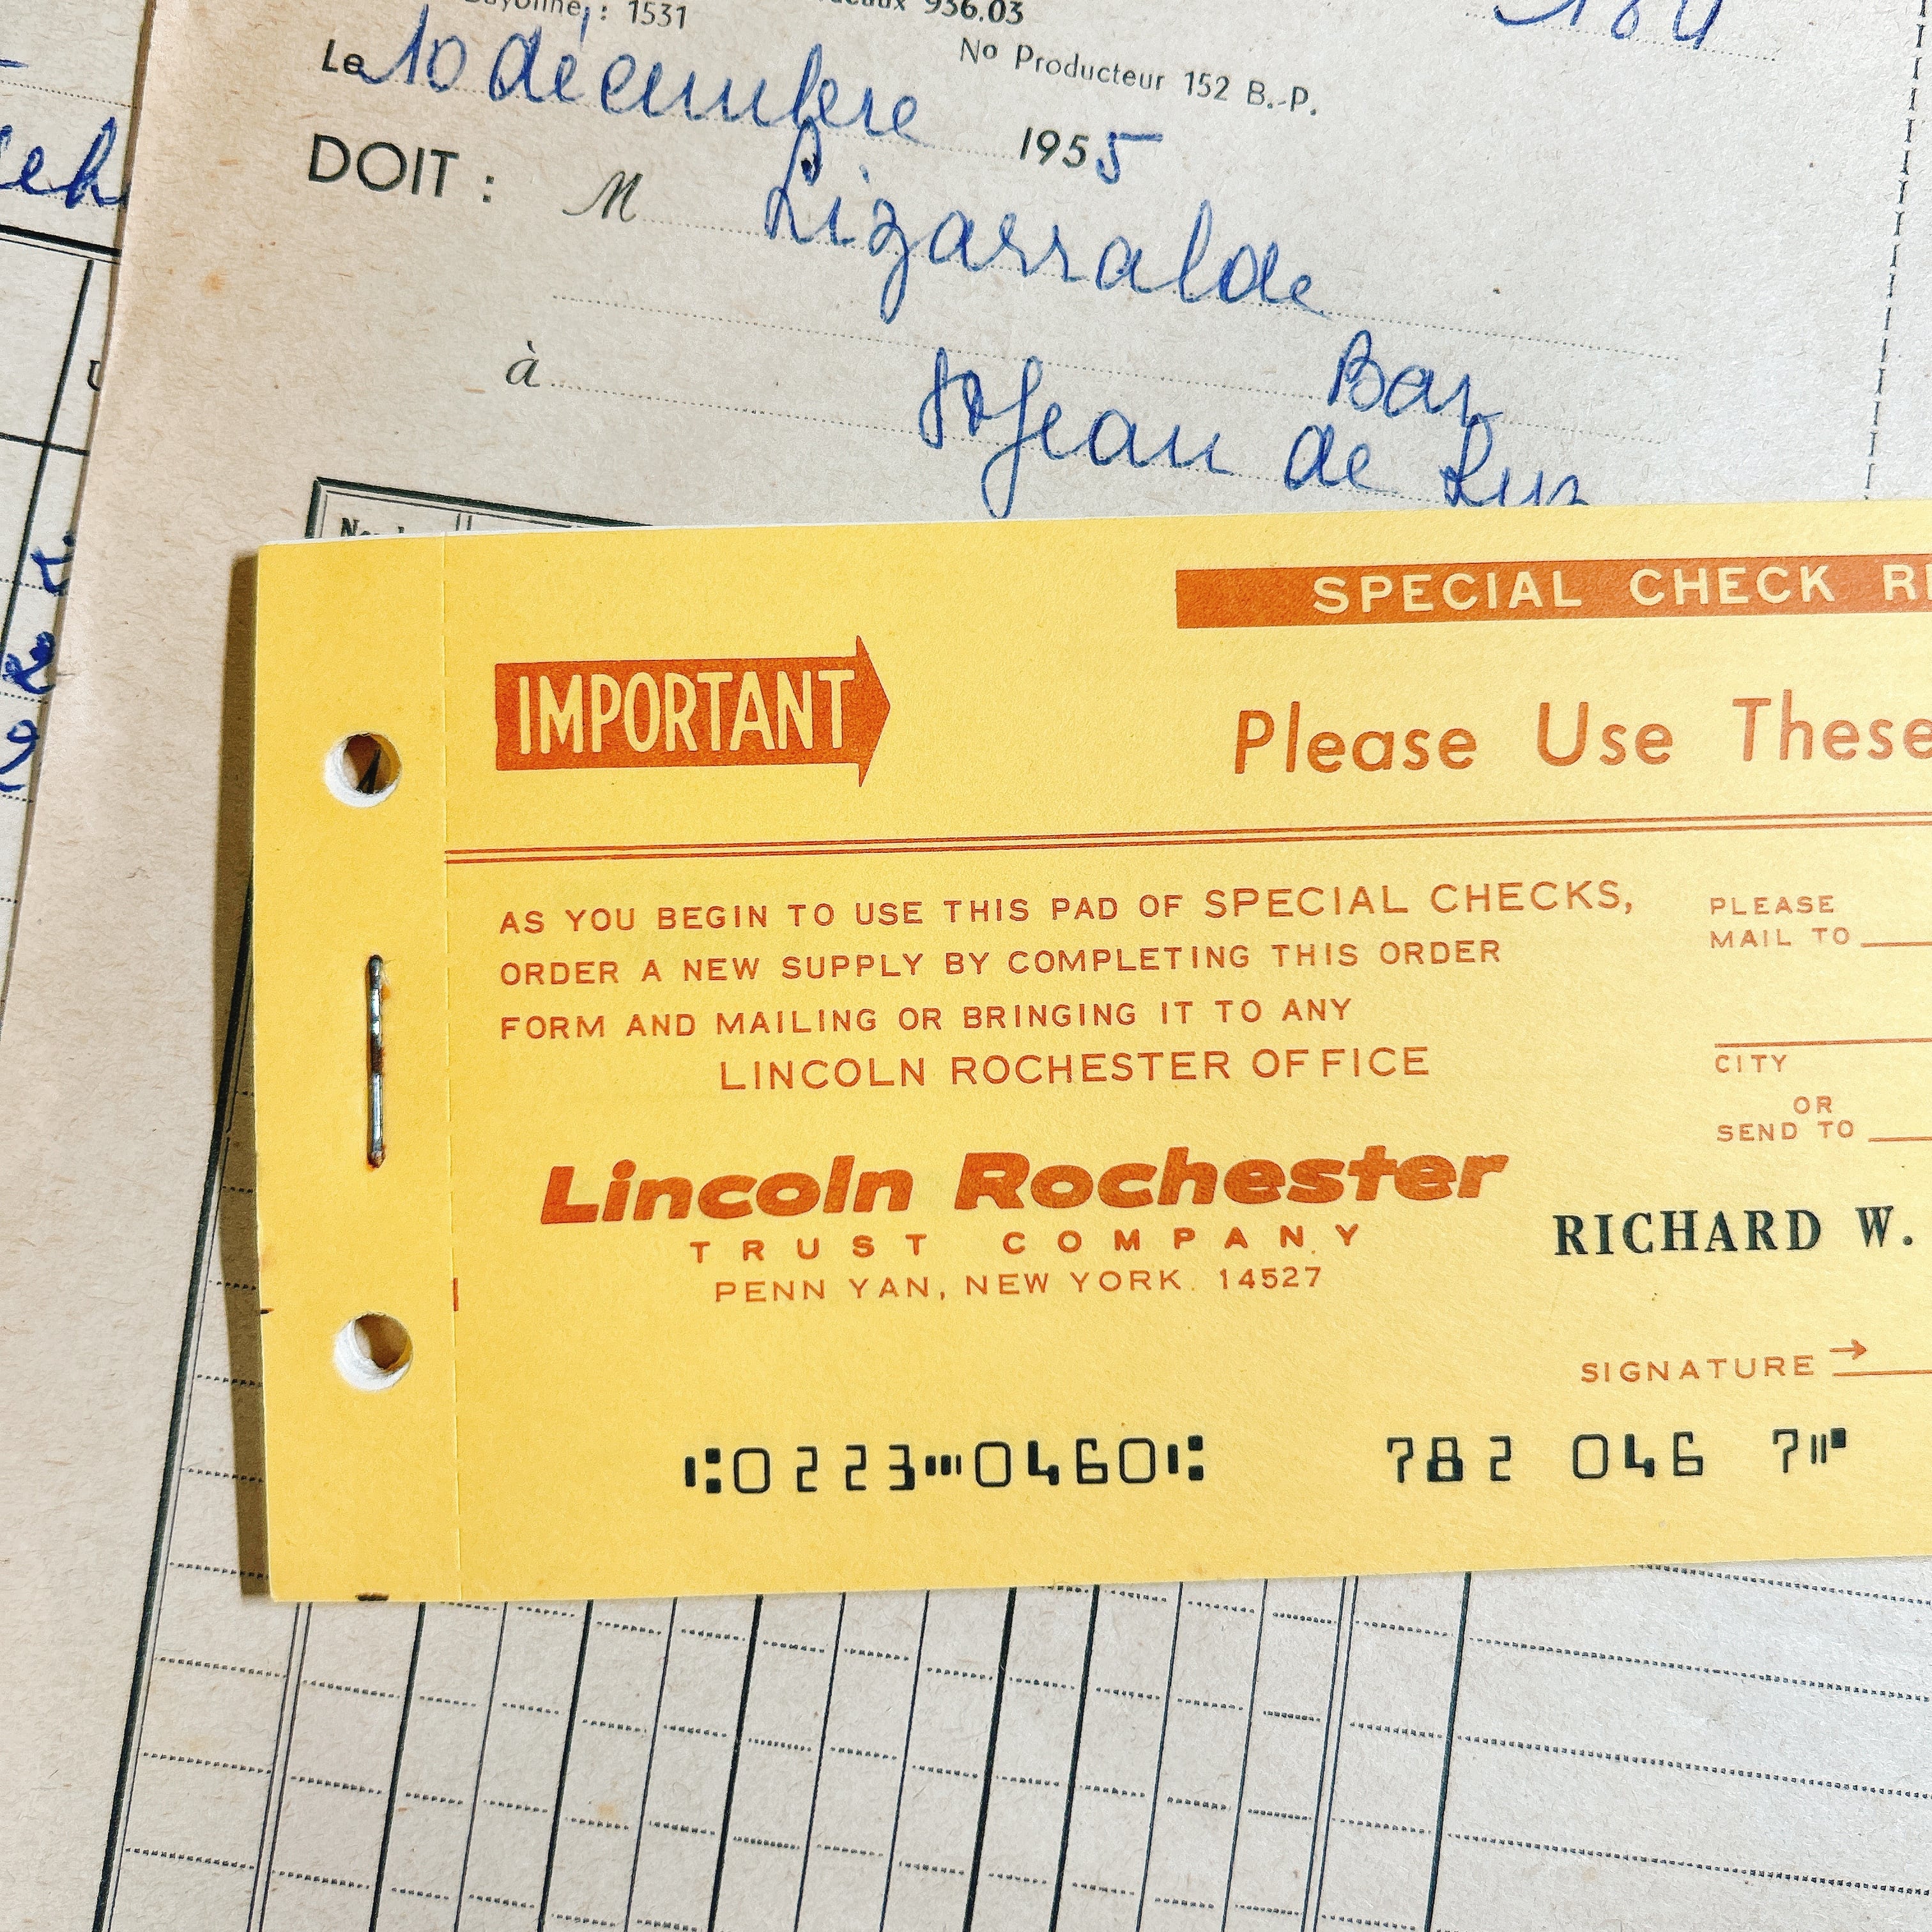 : 1531
936.03
No Producteur 152 B.-P.
Le 10 décembre 1955
DOIT : M Lizarralde
Bar
à St Jean de Luz
SPECIAL CHECK
IMPORTANT
Please Use These
AS YOU BEGIN TO USE THIS PAD OF SPECIAL CHECKS,
ORDER A NEW SUPPLY BY COMPLETING THIS ORDER
FORM AND MAILING OR BRINGING IT TO ANY
LINCOLN ROCHESTER OFFICE
PLEASE
MAIL TO
CITY
OR
SEND TO
Lincoln Rochester
TRUST COMPANY
PENN YAN, NEW YORK 14527
RICHARD W.
SIGNATURE →
⑆0223⑉0460⑆ 782 046 7⑈